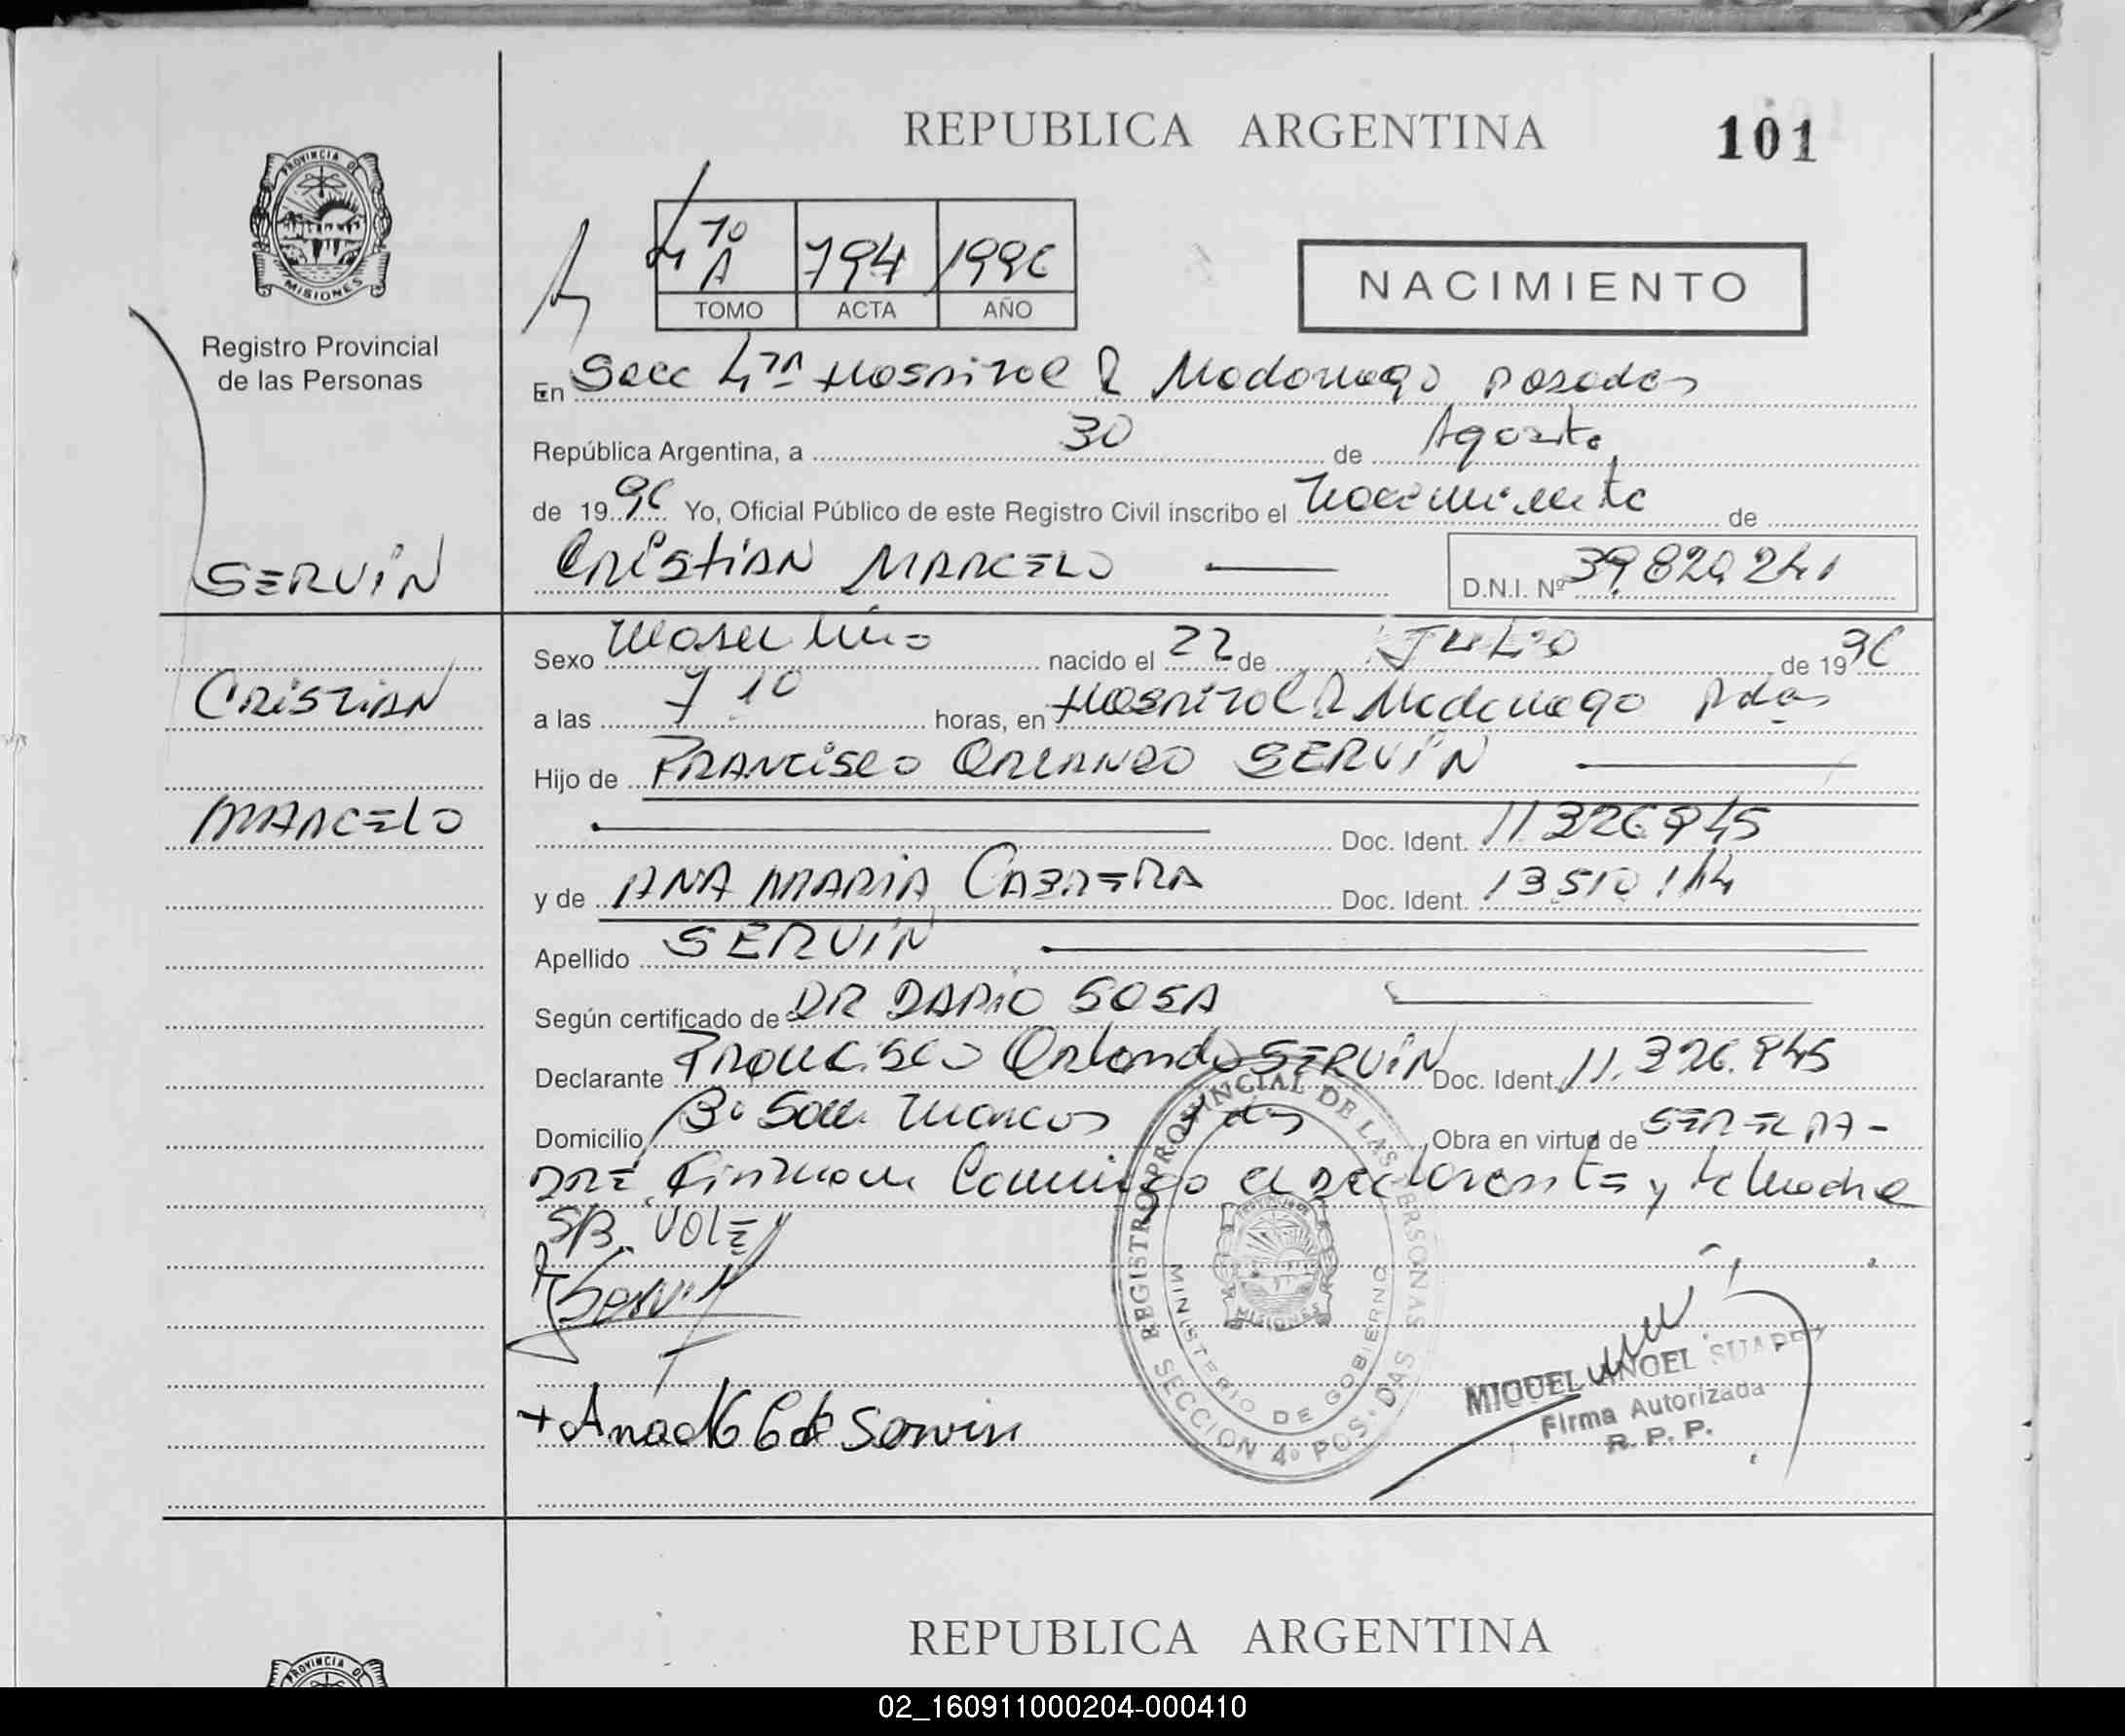 REPUBLICA ARGENTINA
101
PROVINCIA DE
MISIONES
Registro Provincial
de las Personas
794 1996
TOMO ACTA AÑO
NACIMIENTO
En Secc 4ta Hospital R Madariaga Posadas
República Argentina, a 30 de Agosto
de 1996 Yo, Oficial Público de este Registro Civil inscribo el Nacimiento de
SERVIN
CRISTIAN MARCELO
D.N.I. Nº 39.820.241
Sexo Masculino nacido el 22 de JULIO de 1996
CRISTIAN
a las 7 10 horas, en Hospital R Madariaga Pdas
Hijo de FRANCISCO ORLANDO SERVIN
MARCELO
Doc. Ident. 11326845
y de ANA MARIA CABRERA Doc. Ident. 13510114
Apellido SERVIN
Según certificado de DR DARIO SOSA
Declarante Francisco Orlando SERVIN Doc. Ident. 11.326.845
Domicilio Bº San Marcos Pdas Obra en virtud de SER EL PA-
DRE. Firman Conmigo el Declarante y la Madre
S/B. VALE
Servin
REGISTRO PROVINCIAL DE LAS PERSONAS
MINISTERIO DE GOBIERNO
SECCION 4º POS-DAS
MISIONES
MIGUEL ANGEL SUAREZ
Firma Autorizada
R. P. P.
+ Ana M C de Servin
REPUBLICA ARGENTINA
PROVINCIA DE
02_160911000204-000410